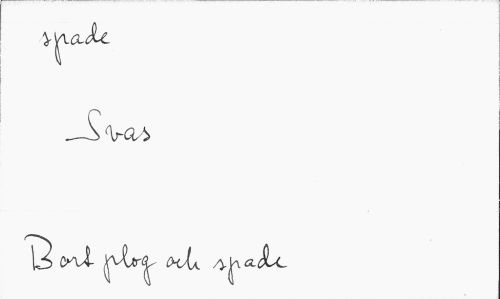 spade
Svas
Bort plog och spade